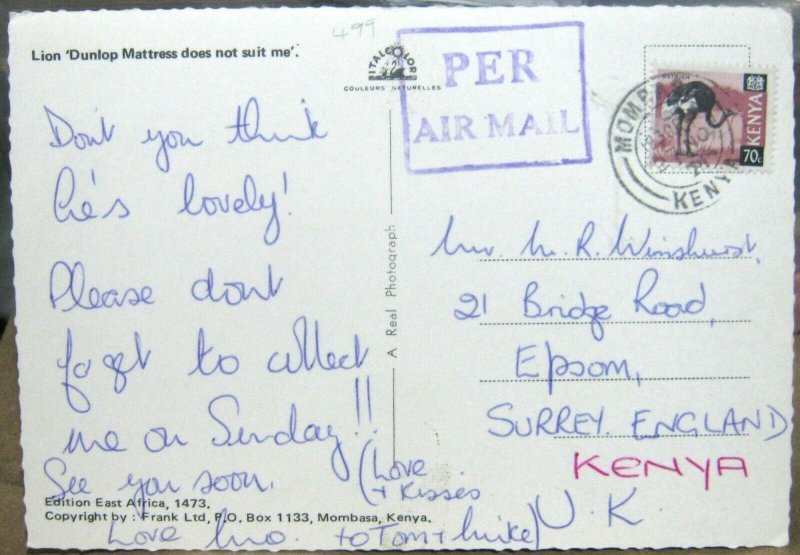 499
Lion 'Dunlop Mattress does not suit me'.
ITALCOLOR
COULEURS NATURELLES
PER
AIR MAIL
OSTRICH
KENYA
70c
MOMB
KENYA
Dont you think
he's lovely!
Please dont
forget to collect
me on Sunday!!
See you soon.
(Love
+ kisses
to Tom + Mike)
Love Mo.
Edition East Africa, 1473.
Copyright by : Frank Ltd, P.O. Box 1133, Mombasa, Kenya.
A Real Photograph
Mr. M. R. Winshurst,
21 Bridge Road,
Epsom,
SURREY. ENGLAND
KENYA
U.K.